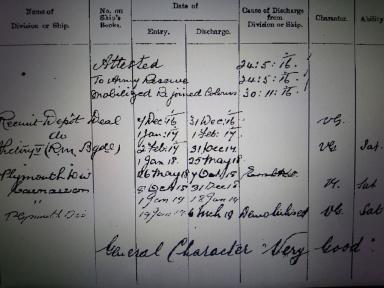 Name of Division or Ship. No. on Ship's Books. Date of Cause of Discharge from Division or Ship. Character. Ability
Entry. Discharge.
Attested 24:5:16.
To Army Reserve 24:5:16.
Mobilized Rejoined Colours 30:11:16.
Recruit Depot Deal 4 Dec 16 31 Dec 16 VG.
do 1 Jan 17 1 Feb 17
2 Feb 17 31 Dec 17 VG Sat.
1 Jan 18 25 May 18
Plymouth Div 26 May 18
8 Oct 18 31 Dec 18 Sat
" 1 Jan 19 18 Jan 19
Plymouth Div 19 Jan 19 6 Mch 19 Demobilised VG Sat
General Character "Very Good".